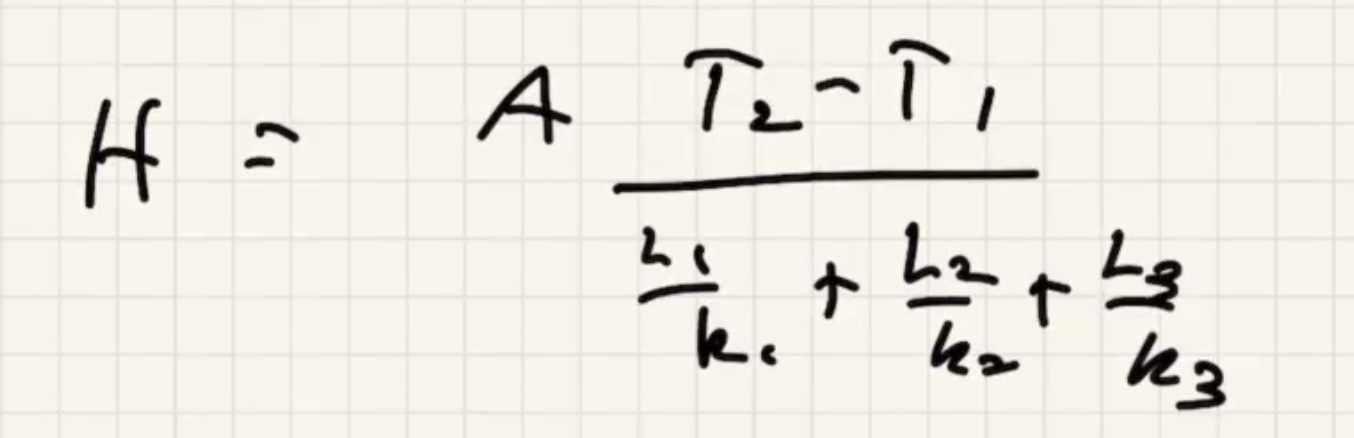 H = A (T₂ - T₁) / (L₁/k₁ + L₂/k₂ + L₃/k₃)